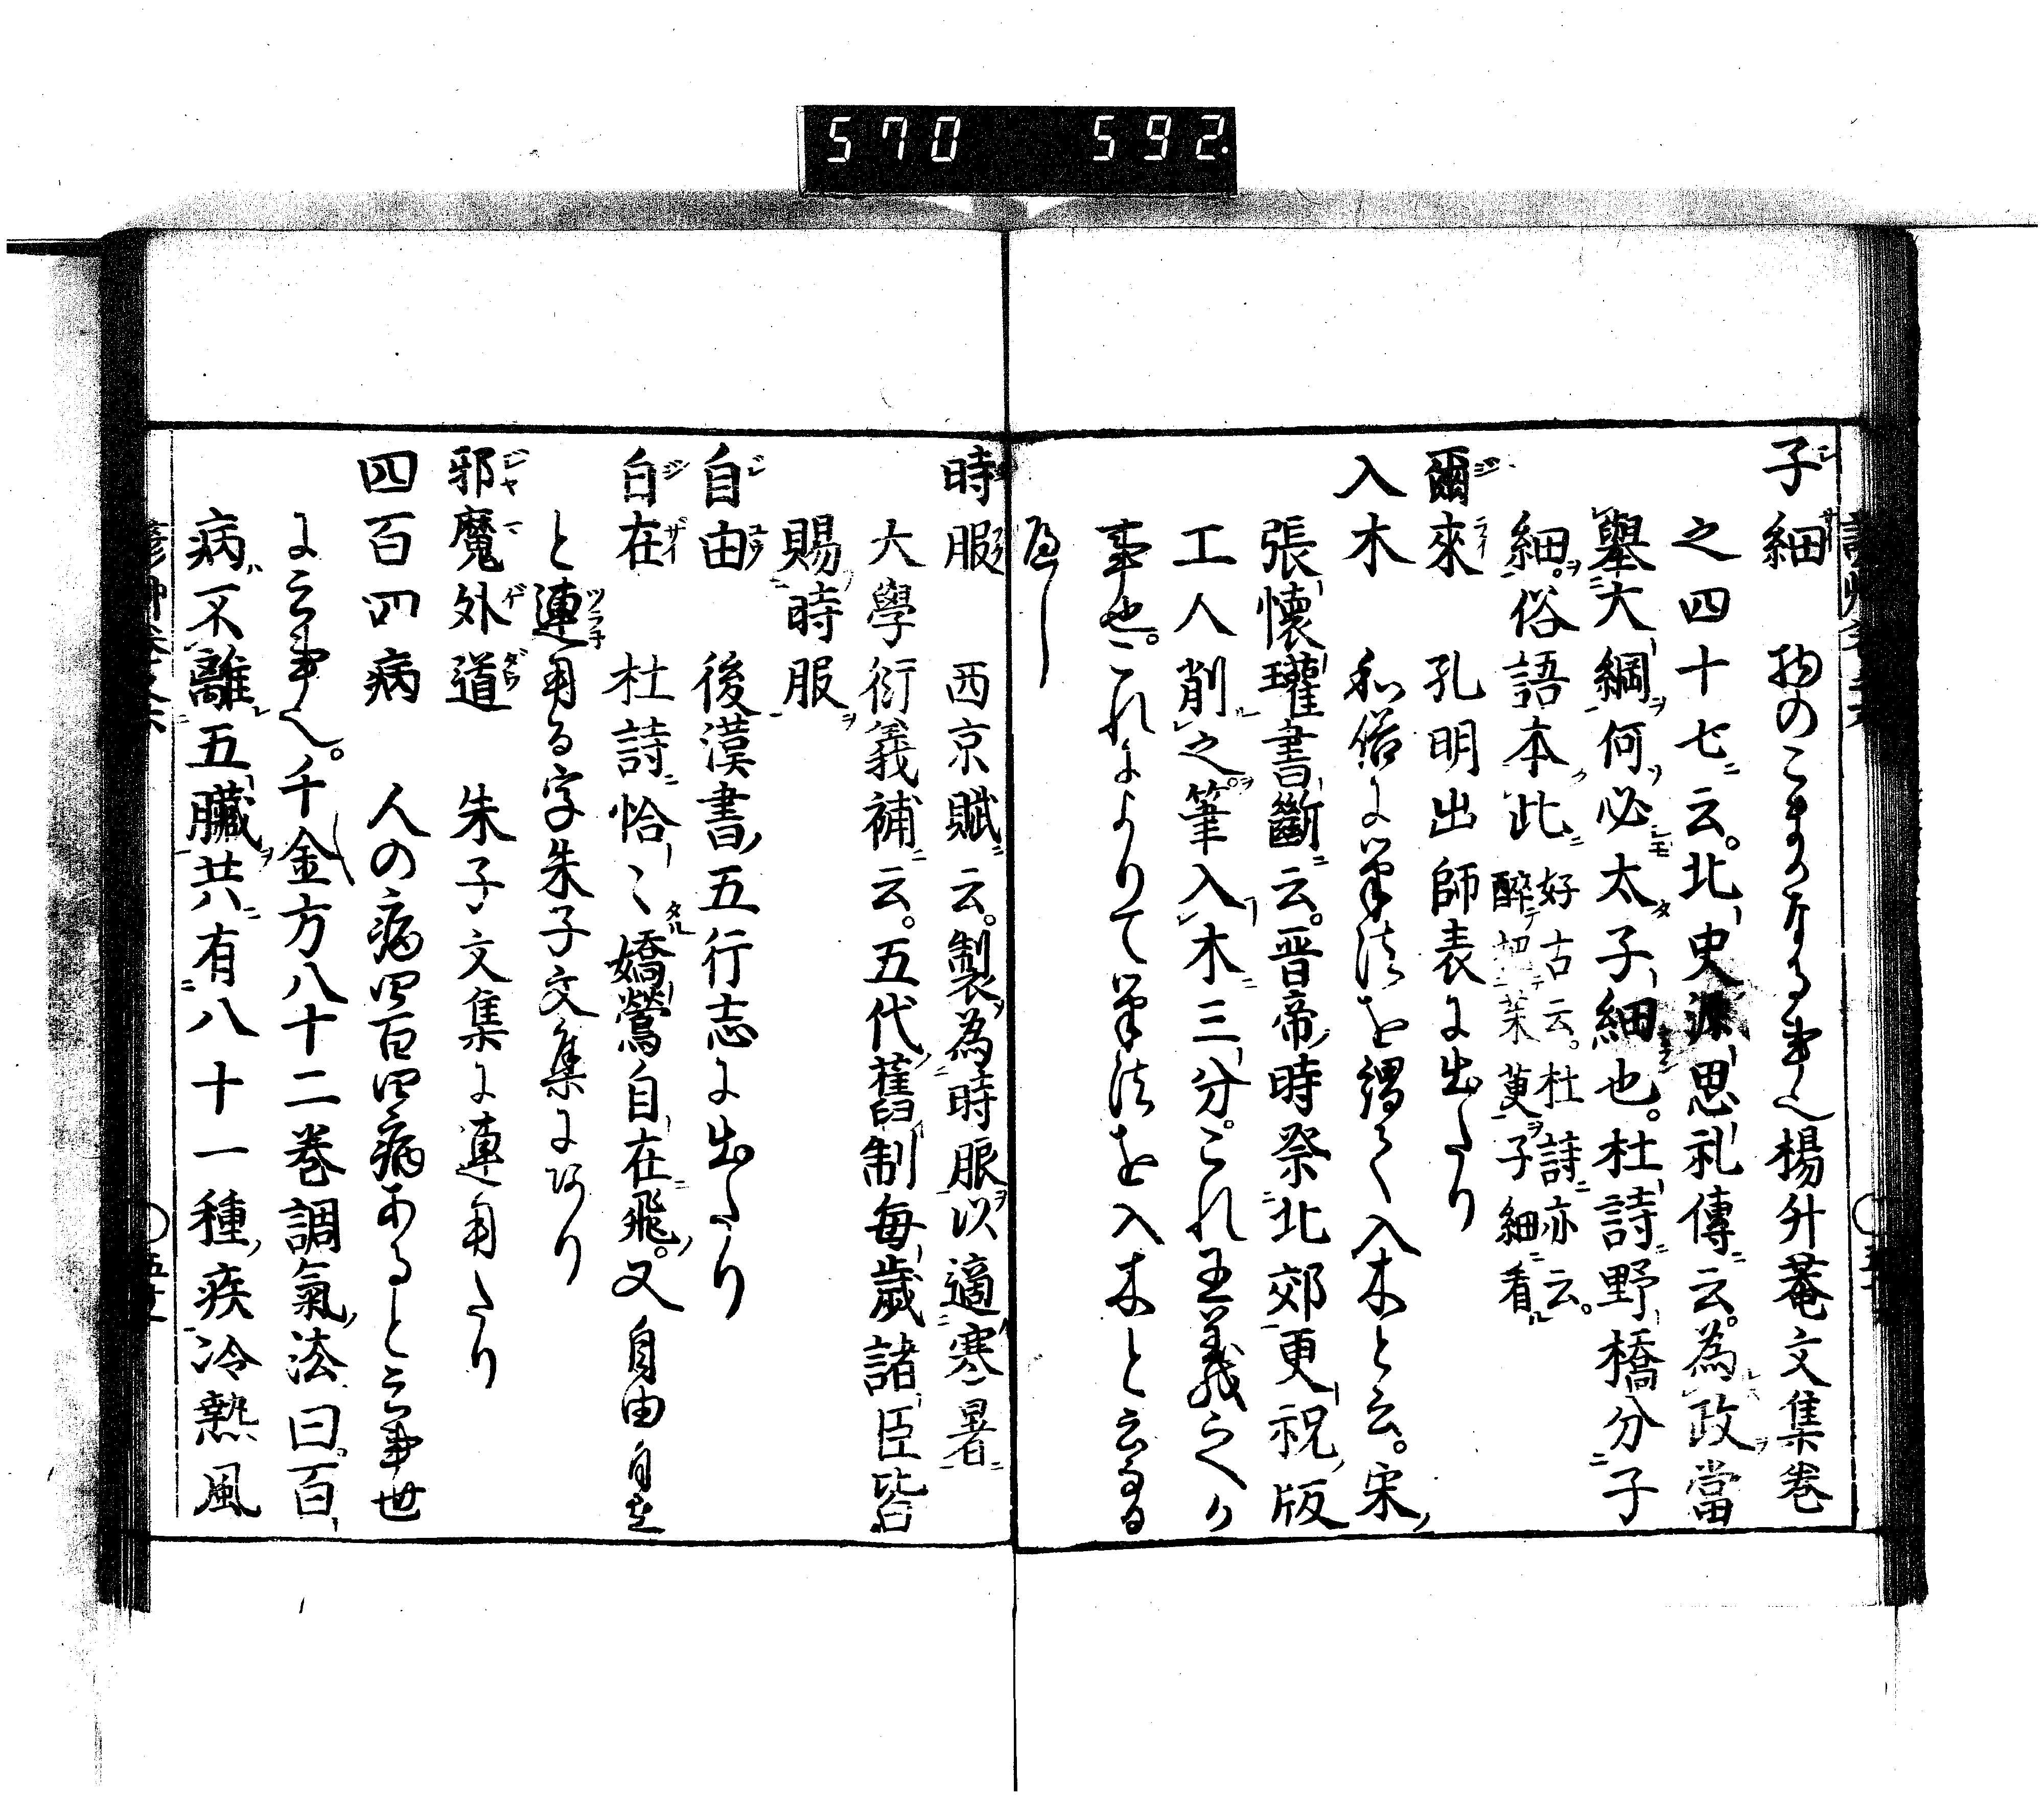 570 592
子細 物のこまかなる事也楊升菴文集巻
之四十七ニ云。北史源思礼傳ニ云。為政當
舉大綱何必太子細也。杜詩ニ野橋分子
細。俗語本此 好古云。杜詩ニ亦云。
醉把茱萸子細看
爾來 孔明出師表に出たり
入木 和俗に筆法を謂て入木と云。宋
張懷瓘書斷ニ云。晋帝時祭北郊更祝版
工人削之筆入木三分。これ王義之か
事也。これによりて筆法を入木と云なる
へし
時服 西京賦ニ云。製為時服以適寒暑
大學衍義補ニ云。五代舊制每歲諸臣皆
賜時服
自由 後漢書五行志に出たり
自在 杜詩ニ恰〻嬌鶯自在飛。又自由自在
と連用る字朱子文集にあり
邪魔外道 朱子文集に連用たり
四百四病 人の病四百四病あると云事世
に云事也。千金方八十二巻調氣法曰。百
病不離五臟共有八十一種疾冷熱風